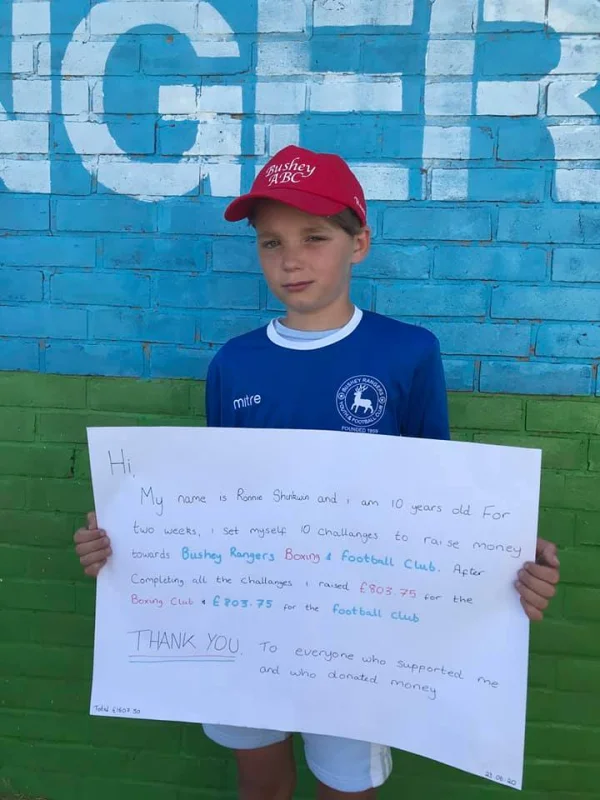 NGER
Bushey
ABC
mitre
BUSHEY RANGERS
YOUTH & FOOTBALL CLUB
FOUNDED 1959
Hi,
My name is Ronnie Shinkwin and i am 10 years old For
two weeks, i set myself 10 challanges to raise money
towards Bushey Rangers Boxing & Football Club. After
Completing all the challanges i raised £803.75 for the
Boxing Club & £803.75 for the football club
THANK YOU. To everyone who supported me
and who donated money
Total £1607.50